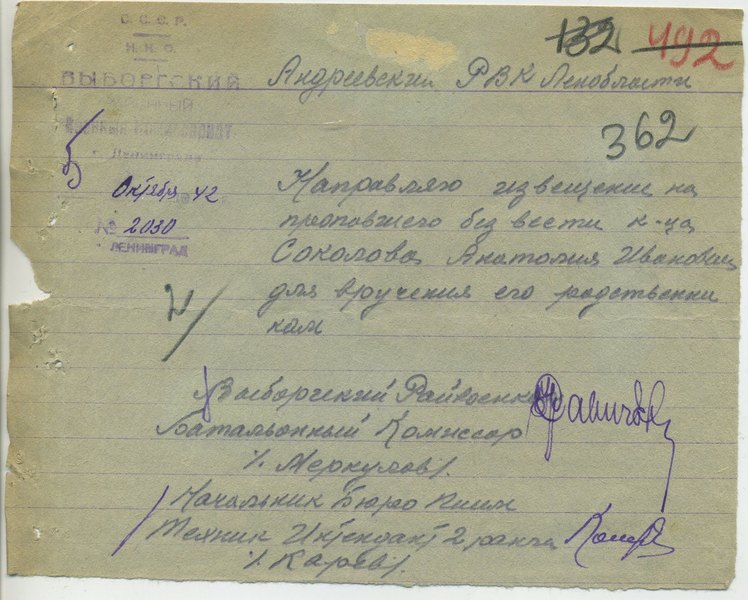 С.С.С.Р.
Н.К.О.
ВЫБОРГСКИЙ
г. Ленинграда
5 Октября 42
№ 2030
ЛЕНИНГРАД
132 492
Андреевский РВК Ленобласти
362
Направляю извещение на
пропавшего без вести к-ца
Соколова Анатолия Иванович
для вручения его родственни
кам
Выборгский Райвоенком
Батальонный Комиссар
/. Меркулов/.
Начальник Бюро
Техник Интендант 2 ранга
/. Карев/.